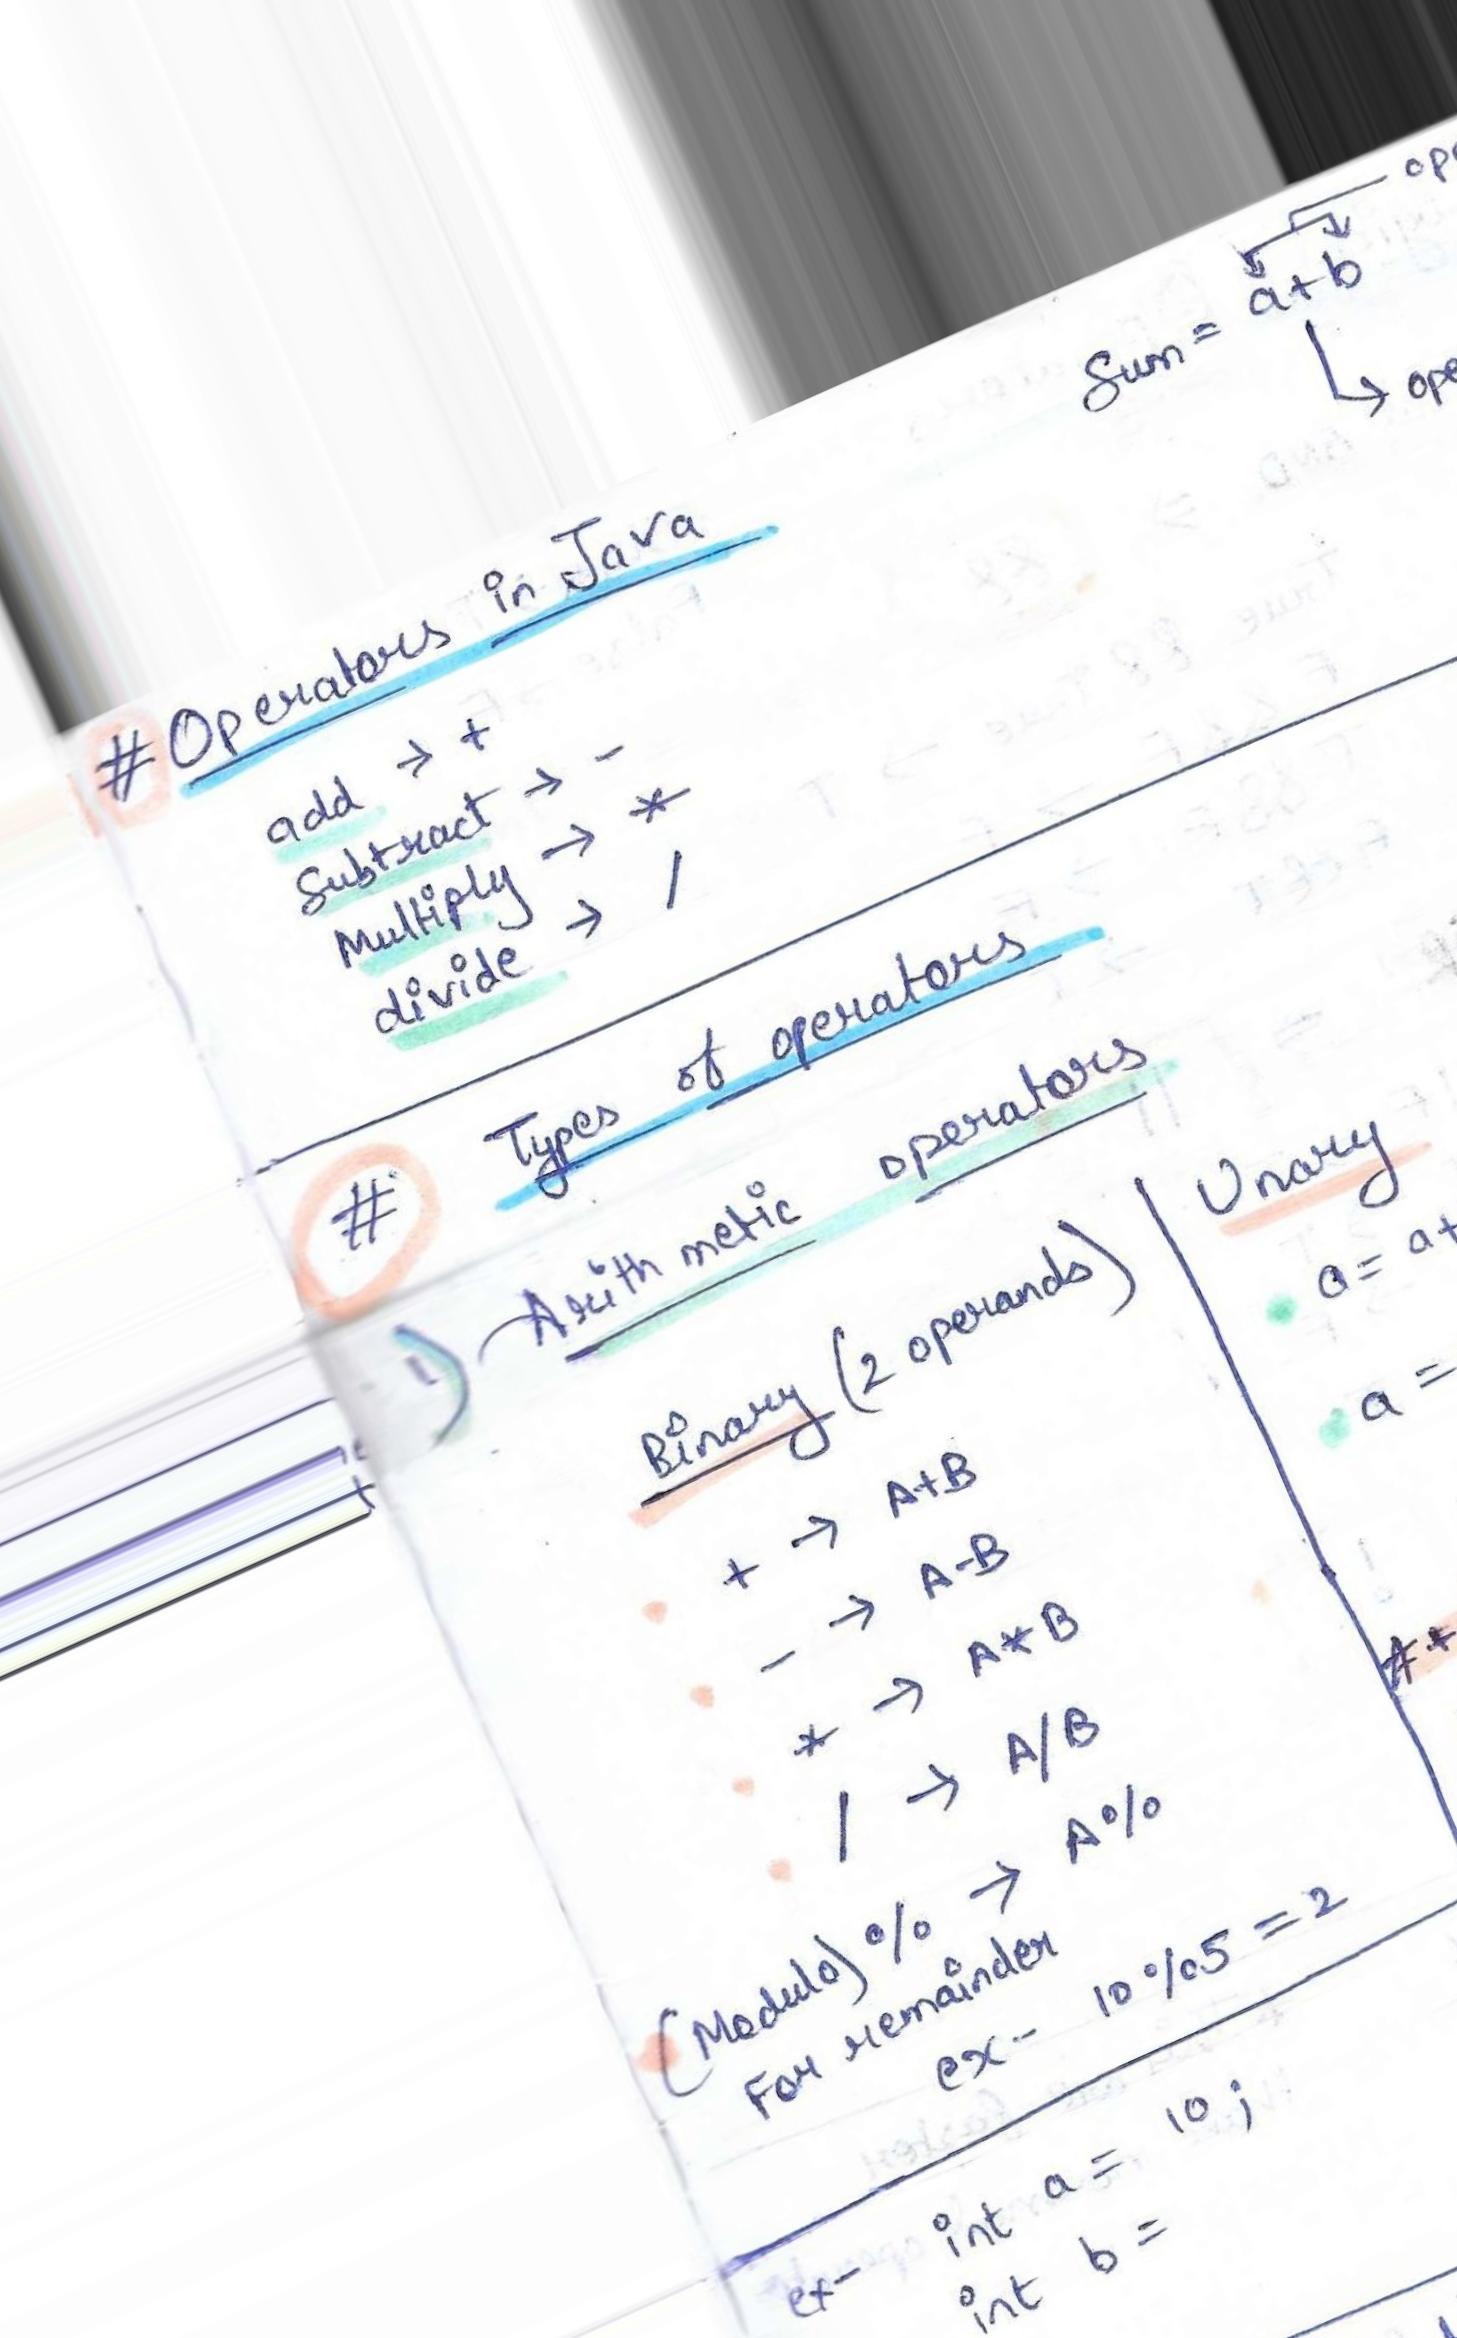 Sum = a+b
# Operators in Java
add → +
Subtract → -
Multiply → *
divide → /
# Types of operators
1) Arithmetic operators
Binary (2 operands)
+ → A+B
- → A-B
* → A*B
/ → A/B
(Modulo) % → A%
For remainder
ex- 10%5 = 2
Unary
a = a+
a =
ex- int a = 10;
int b =